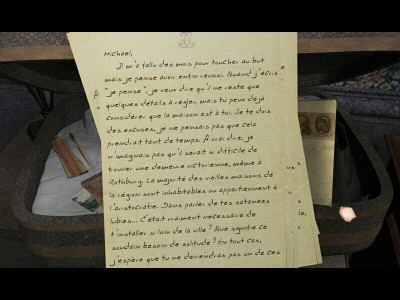 Michael,
Il m'a fallu des mois pour toucher au but
mais je pense avoir enfin réussi. Quand j'écris
"je pense", je veux dire qu'il ne reste que
quelques détails à régler, mais tu peux déjà
considérer que la maison est à toi. Je te dois
des excuses, je ne pensais pas que cela
prendrait tant de temps. A vrai dire, je
n'imaginais pas qu'il serait si difficile de
trouver une demeure victorienne, même à
Rothburg. La majorité des vieilles maisons de
la région sont inhabitables ou appartiennent à
l'aristocratie. Sans parler de tes satanées
lubies... C'était vraiment nécessaire de
t'installer si loin de la ville ? Que signifie ce
soudain besoin de solitude ? En tout cas,
j'espère que tu ne deviendras pas un de ces